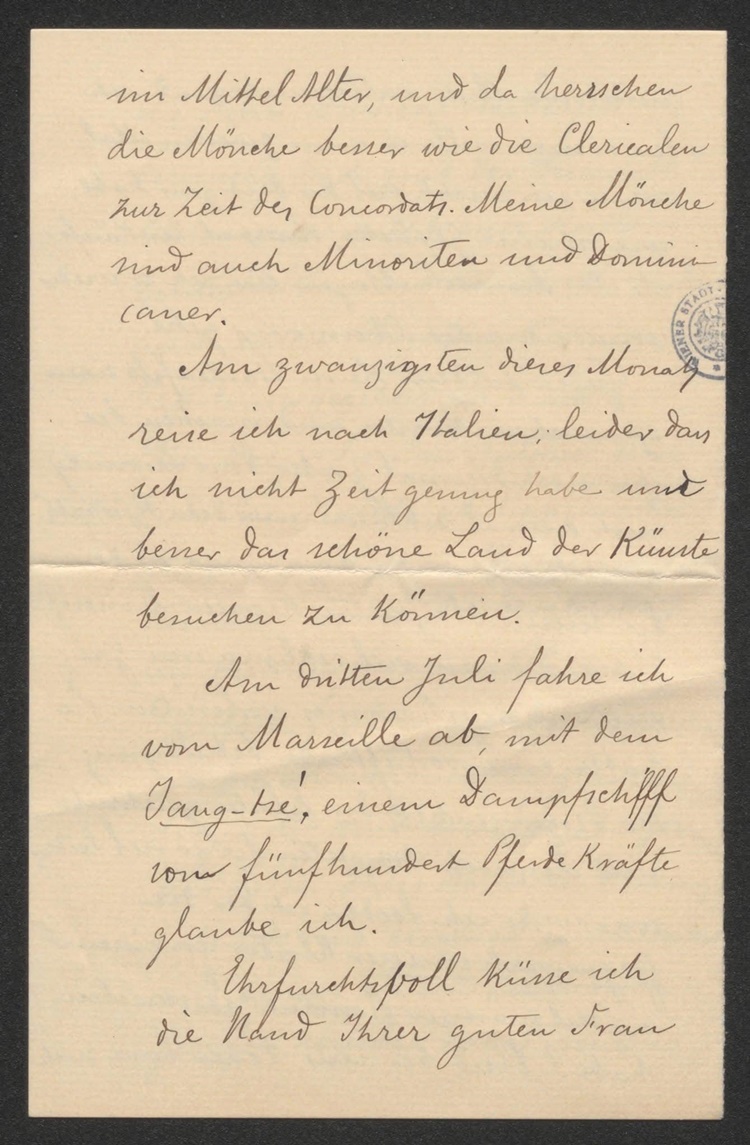 im Mittel Alter, und da herrschen
die Mönche besser wie die Clericalen
zur Zeit des Concordats. Meine Mönche
sind auch Minoriten und Domini-
caner.
WIENER STADT-
Am zwanzigsten dieses Monats
reise ich nach Italien; leider das
ich nicht Zeit genug habe und
besser das schöne Land der Künste
besuchen zu können.
Am dritten Juli fahre ich
vom Marseille ab, mit dem
Jang-tsé, einem Dampfschiff
von fünfhundert Pferde Kräfte
glaube ich.
Ehrfurchtsvoll küsse ich
die Hand Ihrer guten Frau